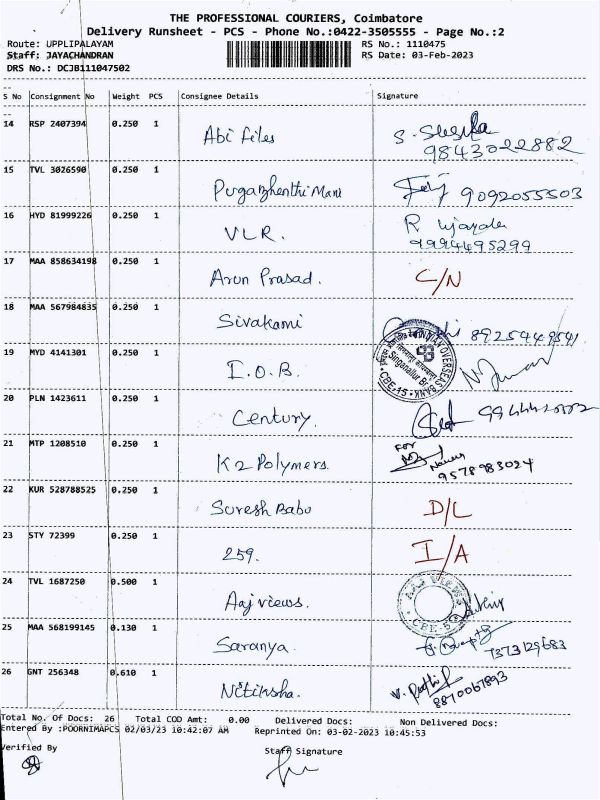 THE PROFESSIONAL COURIERS, Coimbatore
Delivery Runsheet - PCS - Phone No.:0422-3505555 - Page No.:2
Route: UPPLIPALAYAM RS No.: 1110475
Staff: JAYACHANDRAN RS Date: 03-Feb-2023
DRS No.: DCJB111047502
S No Consignment No Weight PCS Consignee Details Signature
14 RSP 2407394 0.250 1
Abi files 9843022882
15 TVL 3026590 0.250 1
Pugazhenthi Mani 9092055503
16 HYD 81999226 0.250 1
VLR. 9994495299
17 MAA 858634198 0.250 1
Arun Prasad. C/N
18 MAA 567984835 0.250 1
Sivakami
19 MYD 4141301 0.250 1
I.O.B. INDIAN OVERSEAS BANK Singanallur Br CBE-15
20 PLN 1423611 0.250 1
Century.
21 MTP 1208510 0.250 1
K2 Polymers For 9578983024
22 KUR 528788525 0.250 1
Suresh Babu D/L
23 STY 72399 0.250 1
259. I/A
24 TVL 1687250 0.500 1
Aaj views. AAJ VIEWS CBE-5
25 MAA 568199145 0.130 1
Saranya. 7373125683
26 GNT 256348 0.610 1
Nitiksha. 8870067893
Total No. Of Docs: 26 Total COD Amt: 0.00 Delivered Docs: Non Delivered Docs:
Entered By :POORNIMAPCS 02/03/23 10:42:07 AM Reprinted On: 03-02-2023 10:45:53
Verified By Staff Signature